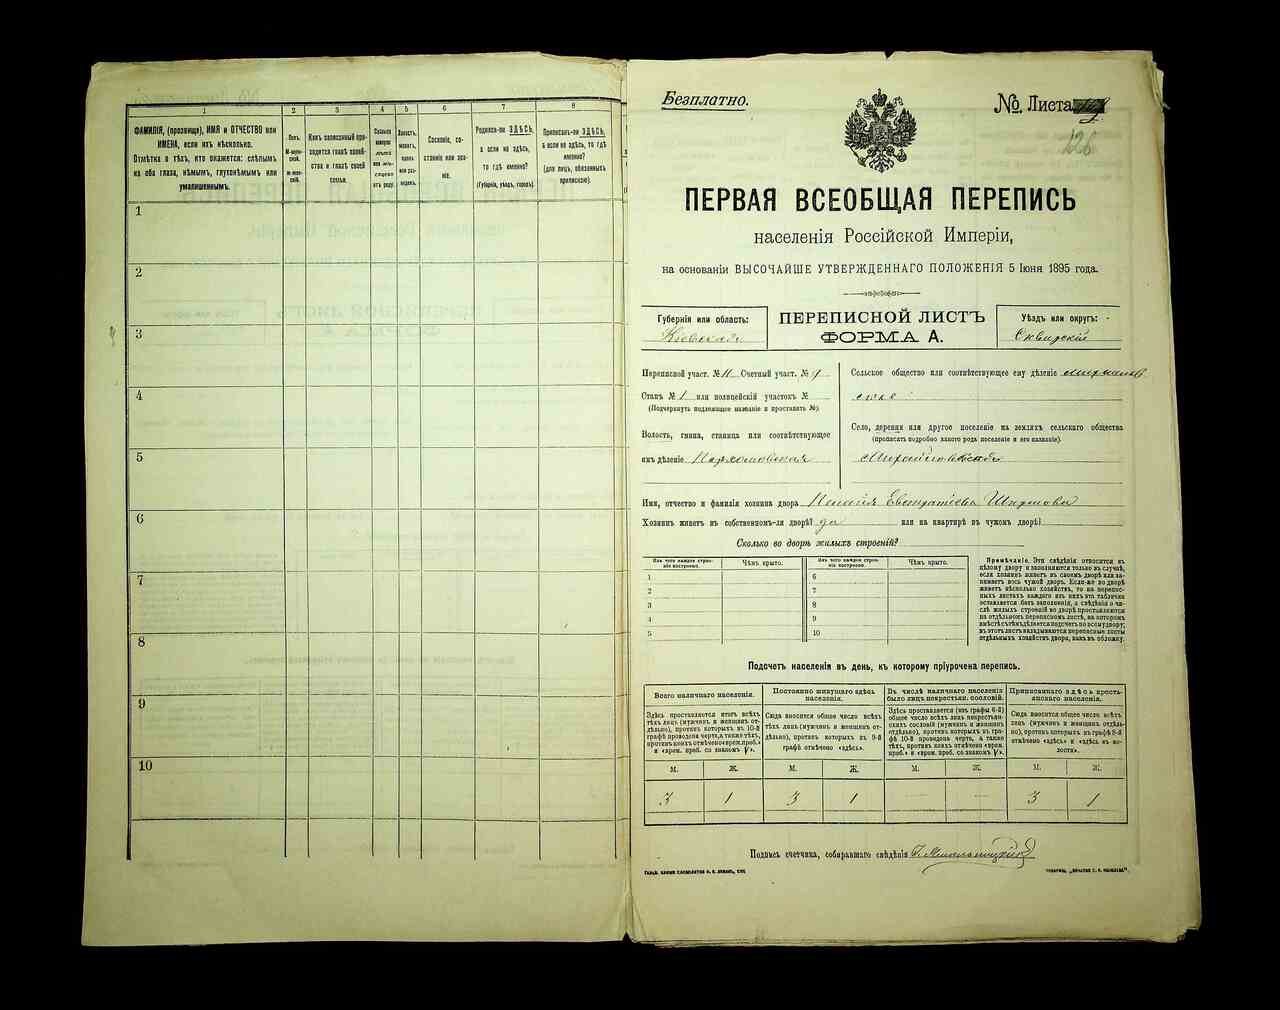 1
2
3
4
5
6
7
8
ФАМИЛІЯ, (прозвище), ИМЯ и ОТЧЕСТВО или
ИМЕНА, если ихъ нѣсколько.
Отмѣтка о тѣхъ, кто окажется: слѣпымъ
на оба глаза, нѣмымъ, глухонѣмымъ или
умалишеннымъ.
Полъ.
М-мужской.
Ж-женской.
Какъ записанный приходится главѣ хозяйства и главѣ своей семьи.
Сколько минуло лѣтъ или мѣсяцевъ отъ роду.
Холостъ, женатъ, вдовъ или разведенъ.
Сословіе, состояніе или званіе.
Родился-ли ЗДѢСЬ,
а если не здѣсь,
то гдѣ именно?
(Губернія, уѣздъ, городъ).
Приписанъ-ли ЗДѢСЬ,
а если не здѣсь, то гдѣ
именно?
(для лицъ, обязанныхъ
припискою).
1
2
3
4
5
6
7
8
9
10
Безплатно.
№ Листа
126
ПЕРВАЯ ВСЕОБЩАЯ ПЕРЕПИСЬ
населенія Россійской Имперіи,
на основаніи ВЫСОЧАЙШЕ УТВЕРЖДЕННАГО ПОЛОЖЕНІЯ 5 Іюня 1895 года.
Губернія или область:
Кіевская
ПЕРЕПИСНОЙ ЛИСТЪ
ФОРМА А.
Уѣздъ или округъ:
Сквирскій
Переписной участ. № 11 Счетный участ. № 9
Станъ № 1 или полицейскій участокъ №
(Подчеркнуть подлежащее названіе и проставить №)
Волость, гмина, станица или соотвѣтствующее
имъ дѣленіе Пархомовская
Сельское общество или соотвѣтствующее ему дѣленіе Михайлов
ское
Село, деревня или другое поселеніе на земляхъ сельскаго общества
(прописать подробно какого рода поселеніе и его названіе).
Михайловская
Имя, отчество и фамилія хозяина двора Евстратіева
Хозяинъ живетъ въ собственномъ-ли дворѣ? да или на квартирѣ въ чужомъ дворѣ?
Сколько во дворѣ жилыхъ строеній?
Изъ чего каждое строеніе построено.
Чѣмъ крыто.
Изъ чего каждое строеніе построено.
Чѣмъ крыто.
1
2
3
4
5
6
7
8
9
10
Примѣчаніе. Эти свѣдѣнія относятся къ
цѣлому двору и заполняются только въ случаѣ,
если хозяинъ живетъ въ своемъ дворѣ или занимаетъ весь чужой дворъ. Если-же во дворѣ
живетъ нѣсколько хозяйствъ, то на переписныхъ листахъ каждаго изъ нихъ эта табличка
оставляется безъ заполненія, а свѣдѣнія о числѣ жилыхъ строеній во дворѣ проставляются
на отдѣльномъ переписномъ листѣ, на которомъ
вмѣстѣ съ тѣмъ дѣлается подсчетъ по всему двору;
въ этотъ листъ вкладываются переписные листы
отдѣльныхъ хозяйствъ двора, какъ въ обложку.
Подсчетъ населенія въ день, къ которому пріурочена перепись.
Всего наличнаго населенія.
Постоянно живущаго здѣсь
населенія.
Въ числѣ наличнаго населенія
было лицъ некрестьян. сословій.
Приписаннаго здѣсь крестьянскаго населенія.
Здѣсь проставляется итогъ всѣхъ
тѣхъ лицъ (мужчинъ и женщинъ отдѣльно), противъ которыхъ въ 10-й
графѣ проведена черта, а также тѣхъ,
противъ коихъ отмѣчено «врем. проб.»
и «врем. проб. со знакомъ V».
Сюда вносится общее число всѣхъ
тѣхъ лицъ (мужчинъ и женщинъ отдѣльно), противъ которыхъ въ 9-й
графѣ отмѣчено «здѣсь».
Здѣсь проставляется (изъ графы 6-й)
общее число всѣхъ лицъ некрестьянскихъ сословій (мужчинъ и женщинъ
отдѣльно), противъ которыхъ въ графѣ 10-й проведена черта, а также
тѣхъ, противъ коихъ отмѣчено «врем.
проб.» и «врем. проб. со знакомъ V».
Сюда вносится общее число всѣхъ
лицъ (мужчинъ и женщинъ отдѣльно), противъ которыхъ въ графѣ 8-й
отмѣчено «здѣсь» и «здѣсь въ волости».
М. Ж. М. Ж. М. Ж. М. Ж.
3 1 3 1 — — 3 1
Подпись счетчика, собиравшаго свѣдѣнія